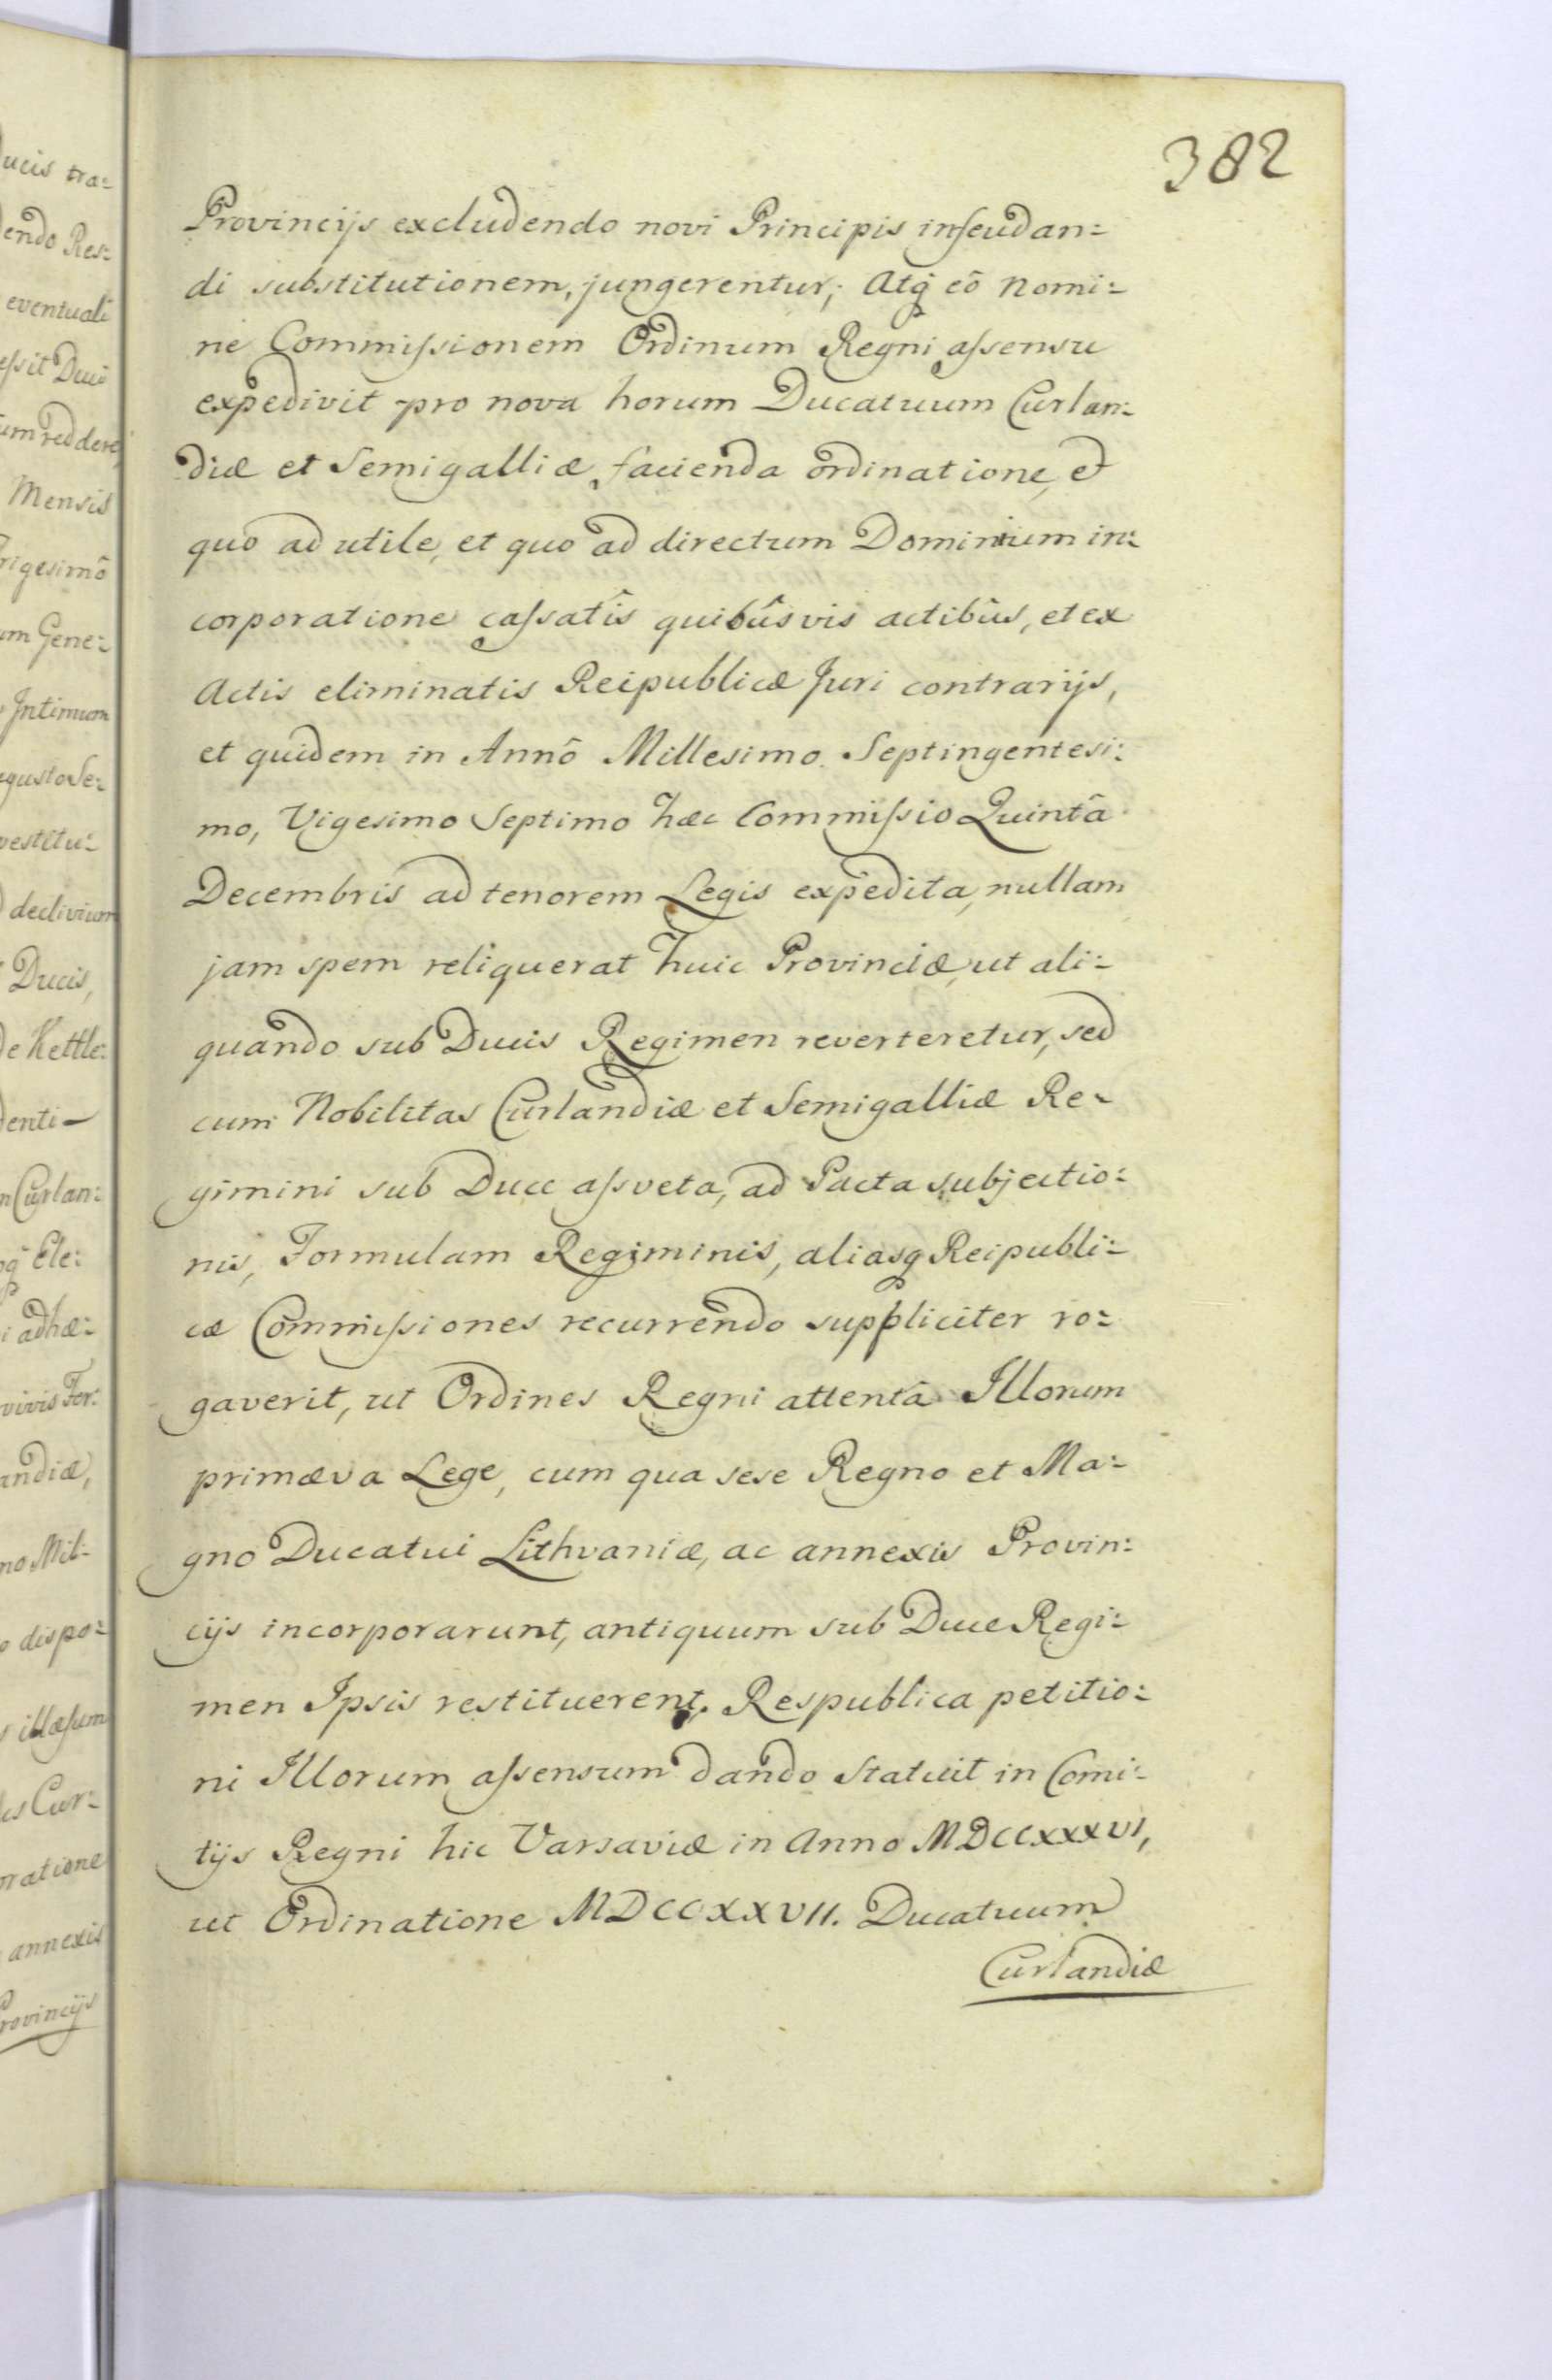 382
Provincijs excludendo novi Principis infeudan=
di substitutionem, jungerentur; Atq eô nomi=
ne Commissionem Ordinum Regni assensu
expedivit pro nova horum Ducatuum Curlan=
diæ et Semigalliæ facienda ordinatione, et
quo ad utile, et quo ad directum Dominium in=
corporatione cassatîs quibûsvis actibûs, et ex
Actis eliminatis Reipublicæ Juri contrarijs,
et quidem in Annô Millesimo Septingentesi=
mo, Vigesimo Septimo hæc Commissio Quintâ
Decembris ad tenorem Legis expedita, nullam
jam spem reliquerat huic Provinciæ, ut ali=
quando sub Ducis Regimen reverteretur, sed
cum Nobilitas Curlandiæ et Semigalliæ Re=
gimini sub Duce assveta, ad Pacta subjectio=
nis, Formulam Regiminis, aliasq Reipubli=
cæ Commissiones recurrendo suppliciter ro=
gaverit, ut Ordines Regni attentâ Illorum
primæva Lege, cum qua sese Regno et Ma=
gno Ducatui Lithvaniæ, ac annexis Provin=
cijs incorporarunt, antiquum sub Duce Regi=
men Ipsis restituerent. Respublica petitio=
ni Illorum assensum dando Statuit in Comi=
tijs Regni hic Varsaviæ in Anno MDCCXXXVI,
ut Ordinatione MDCCXXVII. Ducatuum
Curlandiæ